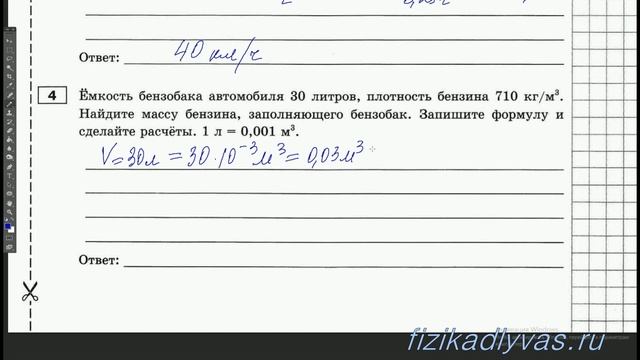 Ответ: 40 км/ч
4 Ёмкость бензобака автомобиля 30 литров, плотность бензина 710 кг/м³.
Найдите массу бензина, заполняющего бензобак. Запишите формулу и
сделайте расчёты. 1 л = 0,001 м³.
V=30л = 30·10⁻³м³ = 0,03м³
Ответ:
fizikadlyvas.ru